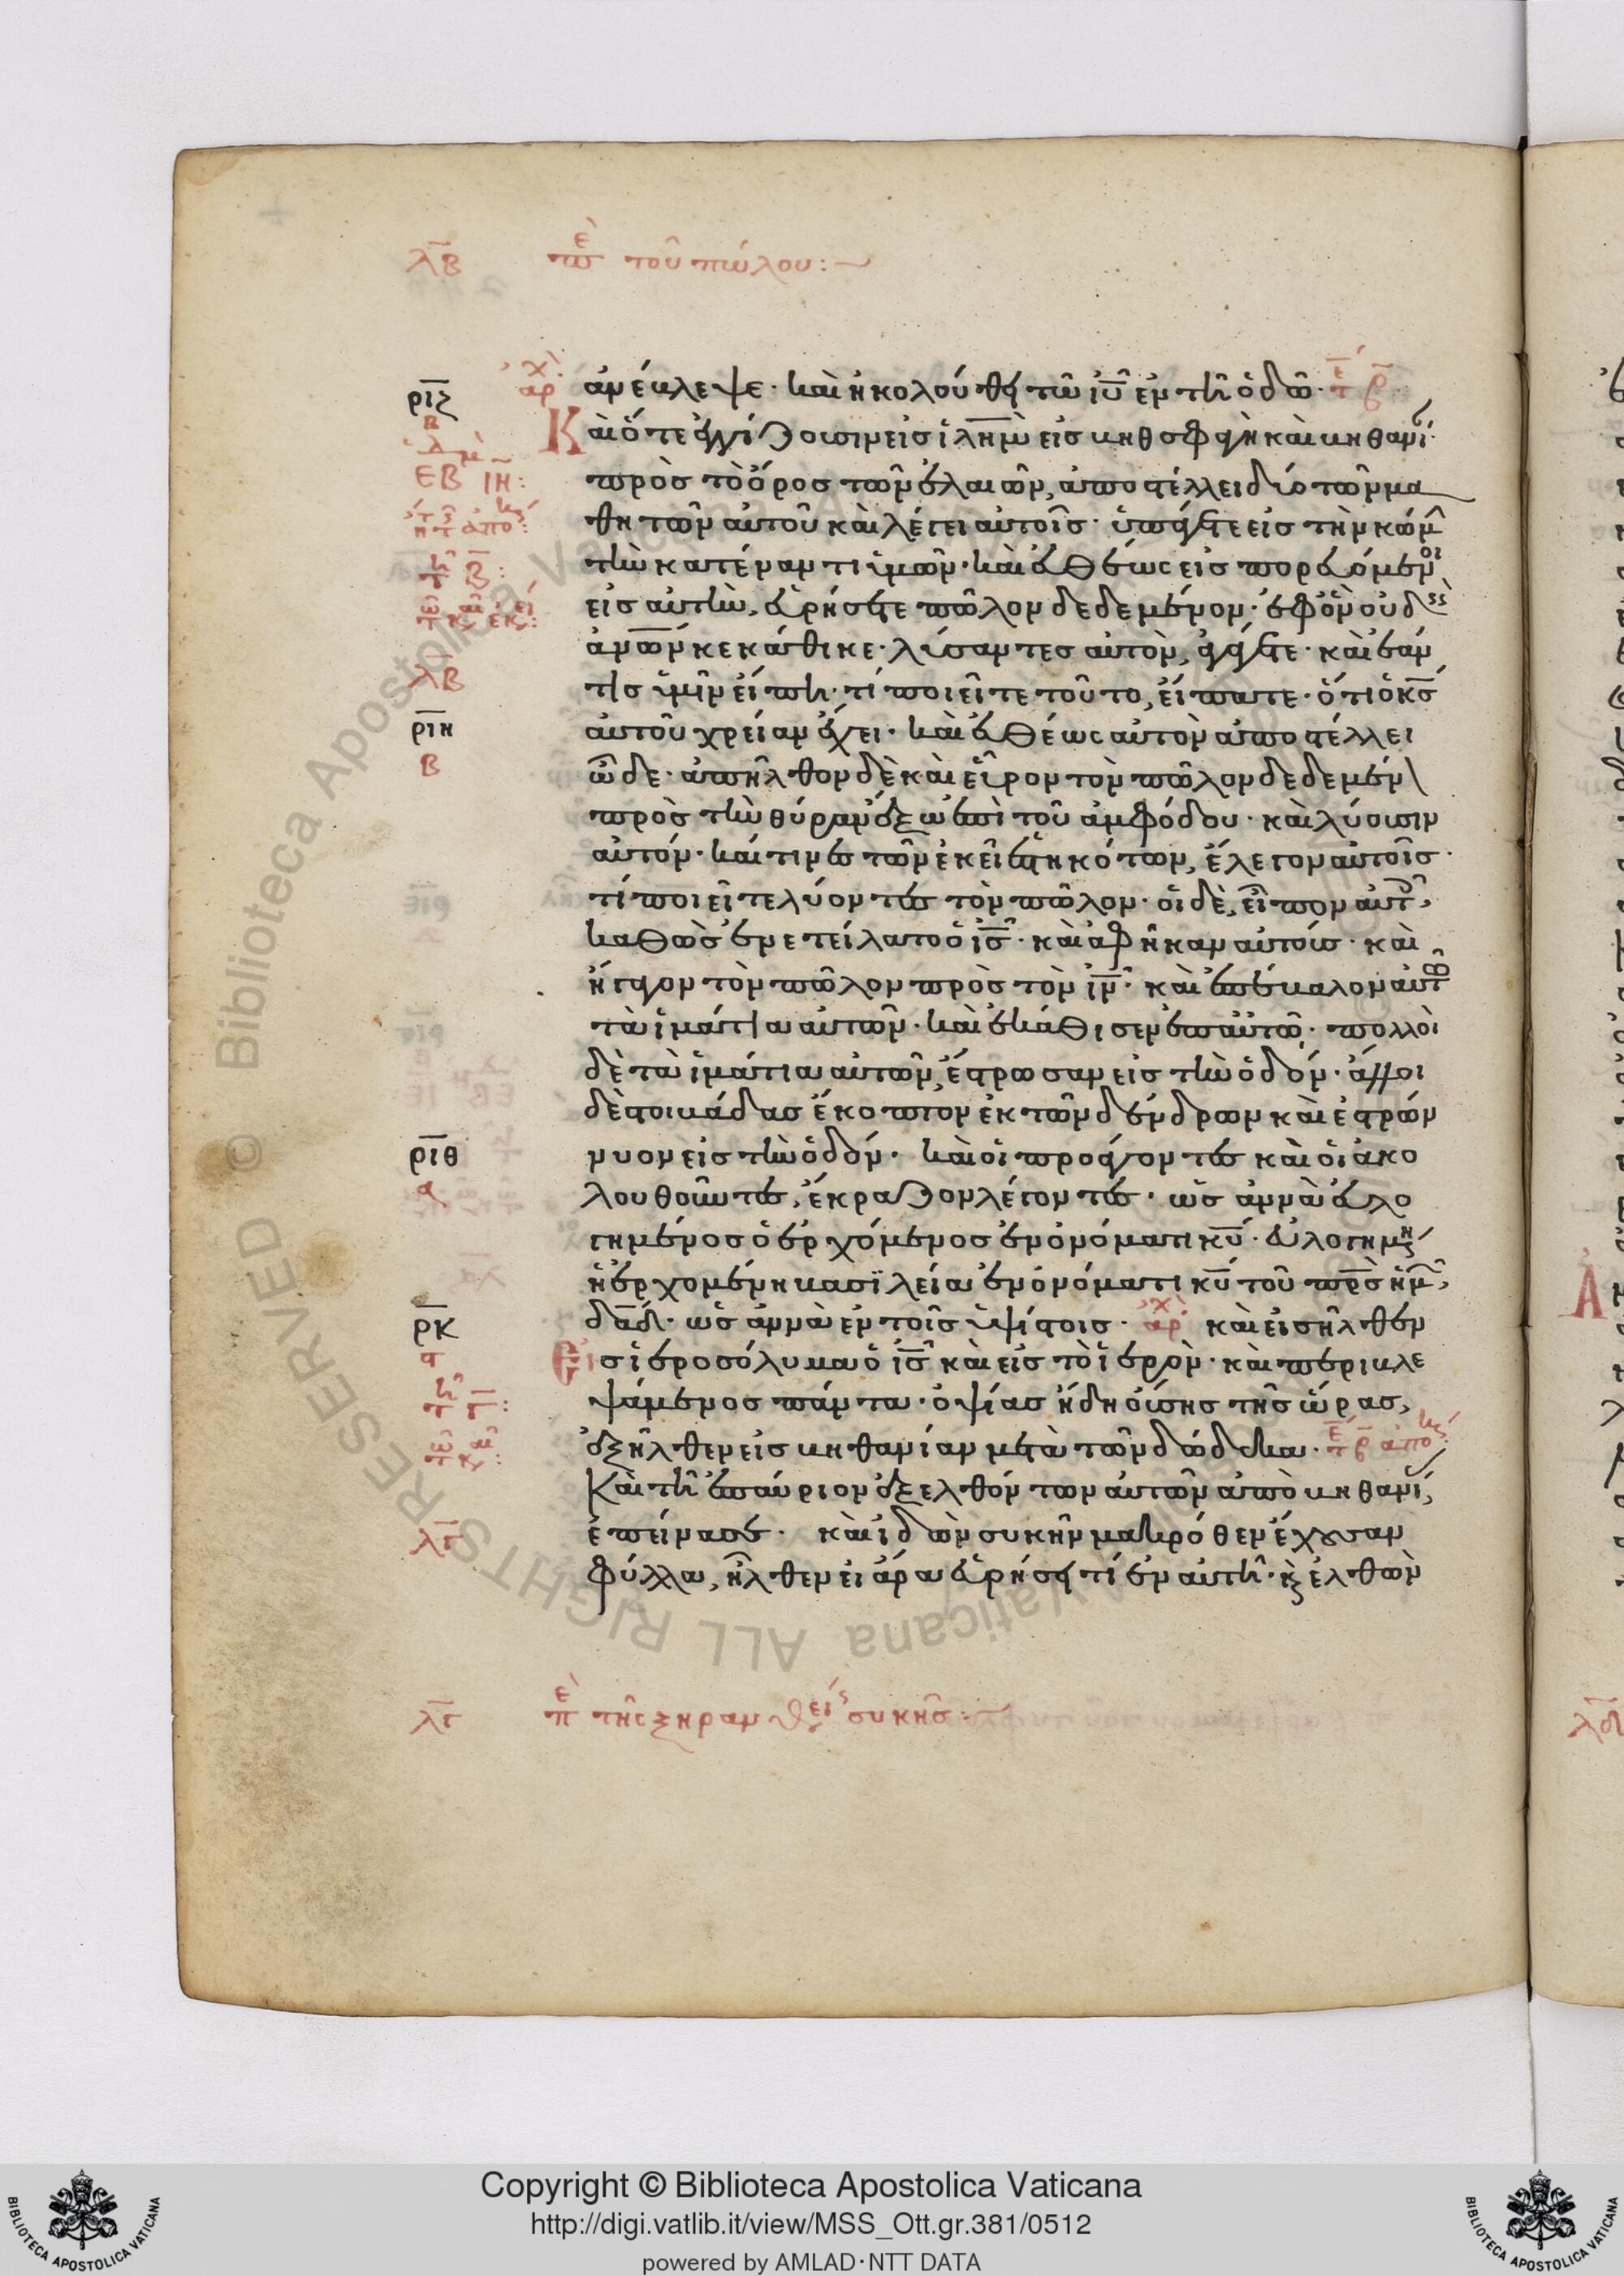 λβ πε τοῦ πώλου:
ἀνέβλεψε· καὶ ἠκολούθη τῶ ιυ ἐν τῆ ὁδῶ·
Καὶ ὅτε ἐγγίζουσιν εἰς ιλημ εἰς βηθσφαγὴ καὶ βηθανί
πρὸς τὸ ὄρος τῶν ἐλαιῶν, ἀποστέλλει δύο τῶν μα
θητῶν αὐτοῦ καὶ λέγει αὐτοῖς· ὑπάγετε εἰς τὴν κώμ
τὴν κατέναντι ὑμῶν· καὶ εὐθέως εἰσπορευόμενοι
εἰς αὐτὴν, εὑρήσετε πῶλον δεδεμένον· ἐφ' ὃν οὐδεὶς
ανων κεκάθικε· λύσαντες αὐτὸν, ἀγάγετε· καὶ ἐάν
τις ὑμῖν εἴπη· τί ποιεῖτε τοῦτο, εἴπατε· ὅτι ὁ κς
αὐτοῦ χρείαν ἔχει· καὶ εὐθέως αὐτὸν ἀποστέλλει
ὧδε· ἀπῆλθον δὲ καὶ εὗρον τὸν πῶλον δεδεμέν
πρὸς τὴν θύραν ἔξω ἐπὶ τοῦ ἀμφόδου· καὶ λύουσιν
αὐτόν· καί τινες τῶν ἐκεῖ ἑστηκότων, ἔλεγον αὐτοῖς·
τί ποιεῖτε λύοντες τὸν πῶλον· οἱ δὲ, εἶπον αὐτ
καθὼς ἐνετείλατο ὁ ις· καὶ ἀφῆκαν αὐτούς· καὶ
ἤγαγον τὸν πῶλον πρὸς τὸν ιν· καὶ ἐπέβαλον αὐτ
τὰ ἱμάτια αὐτῶν· καὶ ἐκάθισεν ἐπ' αὐτῶ· πολλοὶ
δὲ τὰ ἱμάτια αὐτῶν, ἔστρωσαν εἰς τὴν ὁδόν· ἄλλοι
δὲ στοιβάδας ἔκοπτον ἐκ τῶν δένδρων καὶ ἐστρών
νυον εἰς τὴν ὁδόν· καὶ οἱ προάγοντες καὶ οἱ ἀκο
λουθοῦντες, ἔκραζον λέγοντες· ὡσαννὰ εὐλο
γημένος ὁ ἐρχόμενος ἐν ὀνόματι κυ· εὐλογημένη
ἡ ἐρχομένη βασιλεία ἐν ὀνόματι κυ τοῦ πρς ἡμ
δαδ· ὡσαννὰ ἐν τοῖς ὑψίστοις· ἀρχ καὶ εἰσῆλθεν
Εἰς ἱεροσόλυμα ὁ ις καὶ εἰς τὸ ἱερὸν· καὶ περιβλε
ψάμενος πάντα· ὀψίας ἤδη οὔσης τῆς ὥρας,
ἐξῆλθεν εἰς βηθανίαν μετὰ τῶν δώδεκα·
Καὶ τῆ ἐπαύριον ἐξελθόντων αὐτῶν ἀπὸ βηθανί,
ἐπείνασε· καὶ ἰδὼν συκῆν μακρόθεν ἔχουσαν
φύλλα, ἦλθεν εἰ ἄρα εὑρήσει τί ἐν αὐτῆ· κ ἐλθὼν
λγ πε τῆς ξηρανθείς συκῆς:
ριζ
β
λβ
ριη
β
ριθ
α
ρκ
λγ
Copyright © Biblioteca Apostolica Vaticana
http://digi.vatlib.it/view/MSS_Ott.gr.381/0512
powered by AMLAD·NTT DATA
BIBLIOTECA APOSTOLICA VATICANA
BIBLIOTECA APOSTOLICA VATICANA